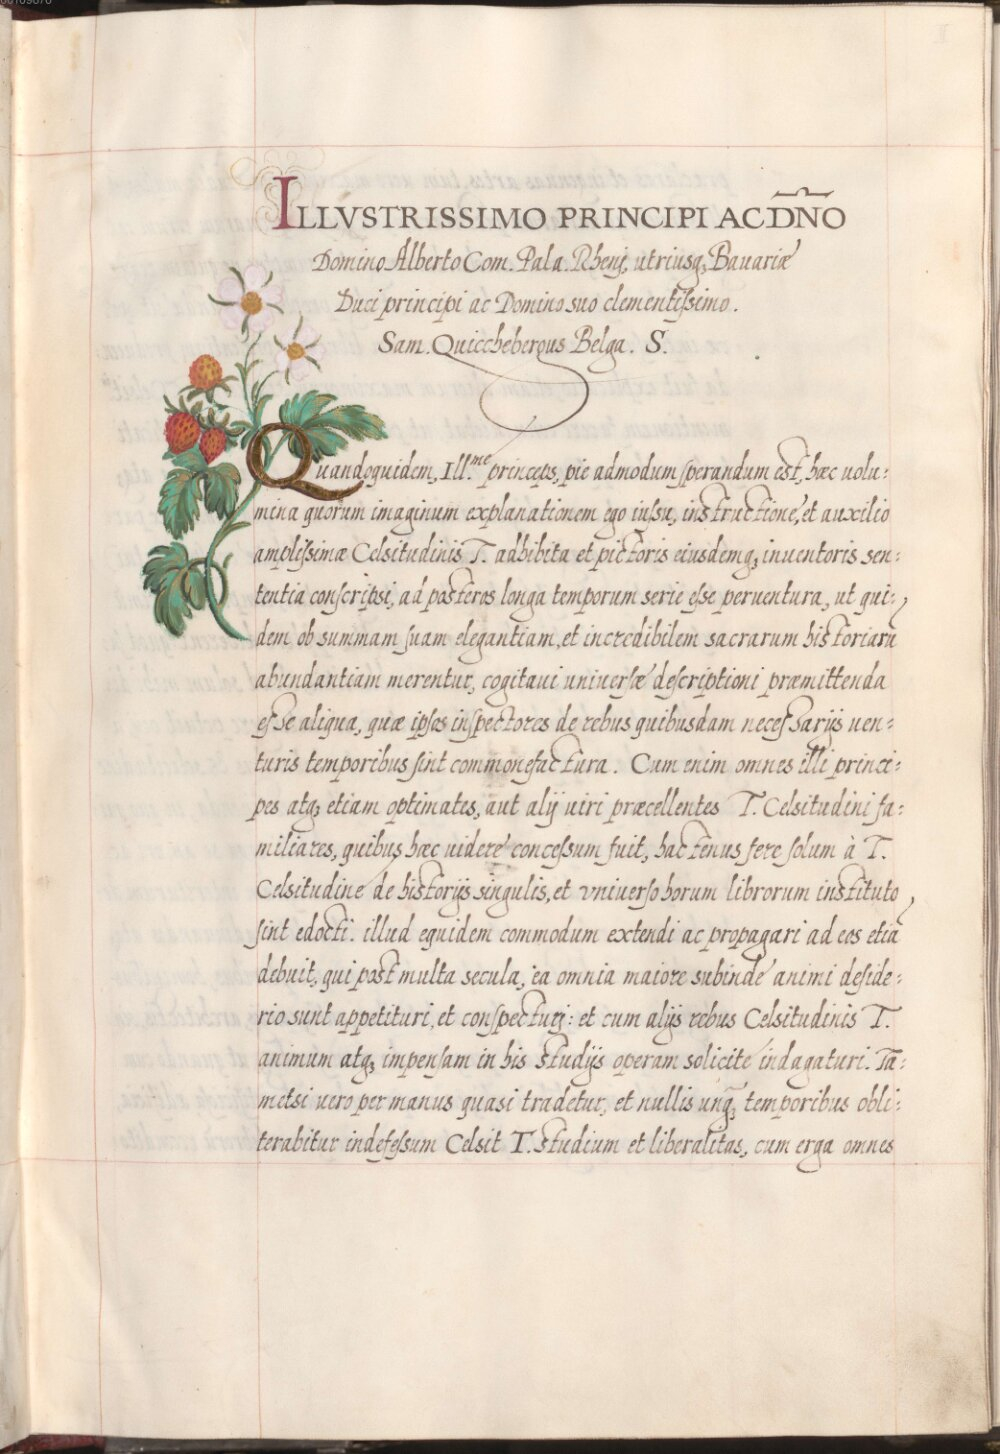 ILLVSTRISSIMO PRINCIPI AC DN̄O
Domino Alberto Com. Pala. Rhenj, utriusq, Bauariæ
Duci principi ac Domino suo clementißimo.
Sam. Quiccheberous Belga. S.
Quandoquidem, Ill.me princeps, pie admodum sperandum est, hæc uolu:
mina quorum imaginum explanationem ego iussu, instructione, et auxilio
amplißimæ Celsitudinis T. adhibita et pictoris eiusdemq, inuentoris sen:
tentia conscripsi, ad posteros longa temporum serie esse peruentura, ut qui:
dem ob summam suam elegantiam, et incredibilem sacrarum historiarū
abundantiam merentur, cogitaui uniuersæ descriptioni præmittenda
esse aliqua, quæ ipsos inspectores de rebus quibusdam necessarijs uen:
turis temporibus sint commonefactura. Cum enim omnes illi princi:
pes atq, etiam optimates, aut alij uiri præcellentes T. Celsitudini fa:
miliares, quibus hæc uidere concessum fuit, hactenus fere solum à T.
Celsitudine de historijs singulis, et vniuerso horum librorum instituto
sint edocti. illud equidem commodum extendi ac propagari ad eos etiā
debuit, qui post multa secula, ea omnia maiore subinde animi deside:
rio sunt appetituri, et conspecturj: et cum alijs rebus Celsitudinis T.
animum atq, impensam in his studijs operam solicite indagaturi. Ta:
metsi uero per manus quasi tradetur, et nullis unq̄, temporibus obli:
terabitur indefessum Celsit T. studium et liberalitas, cum erga omnes